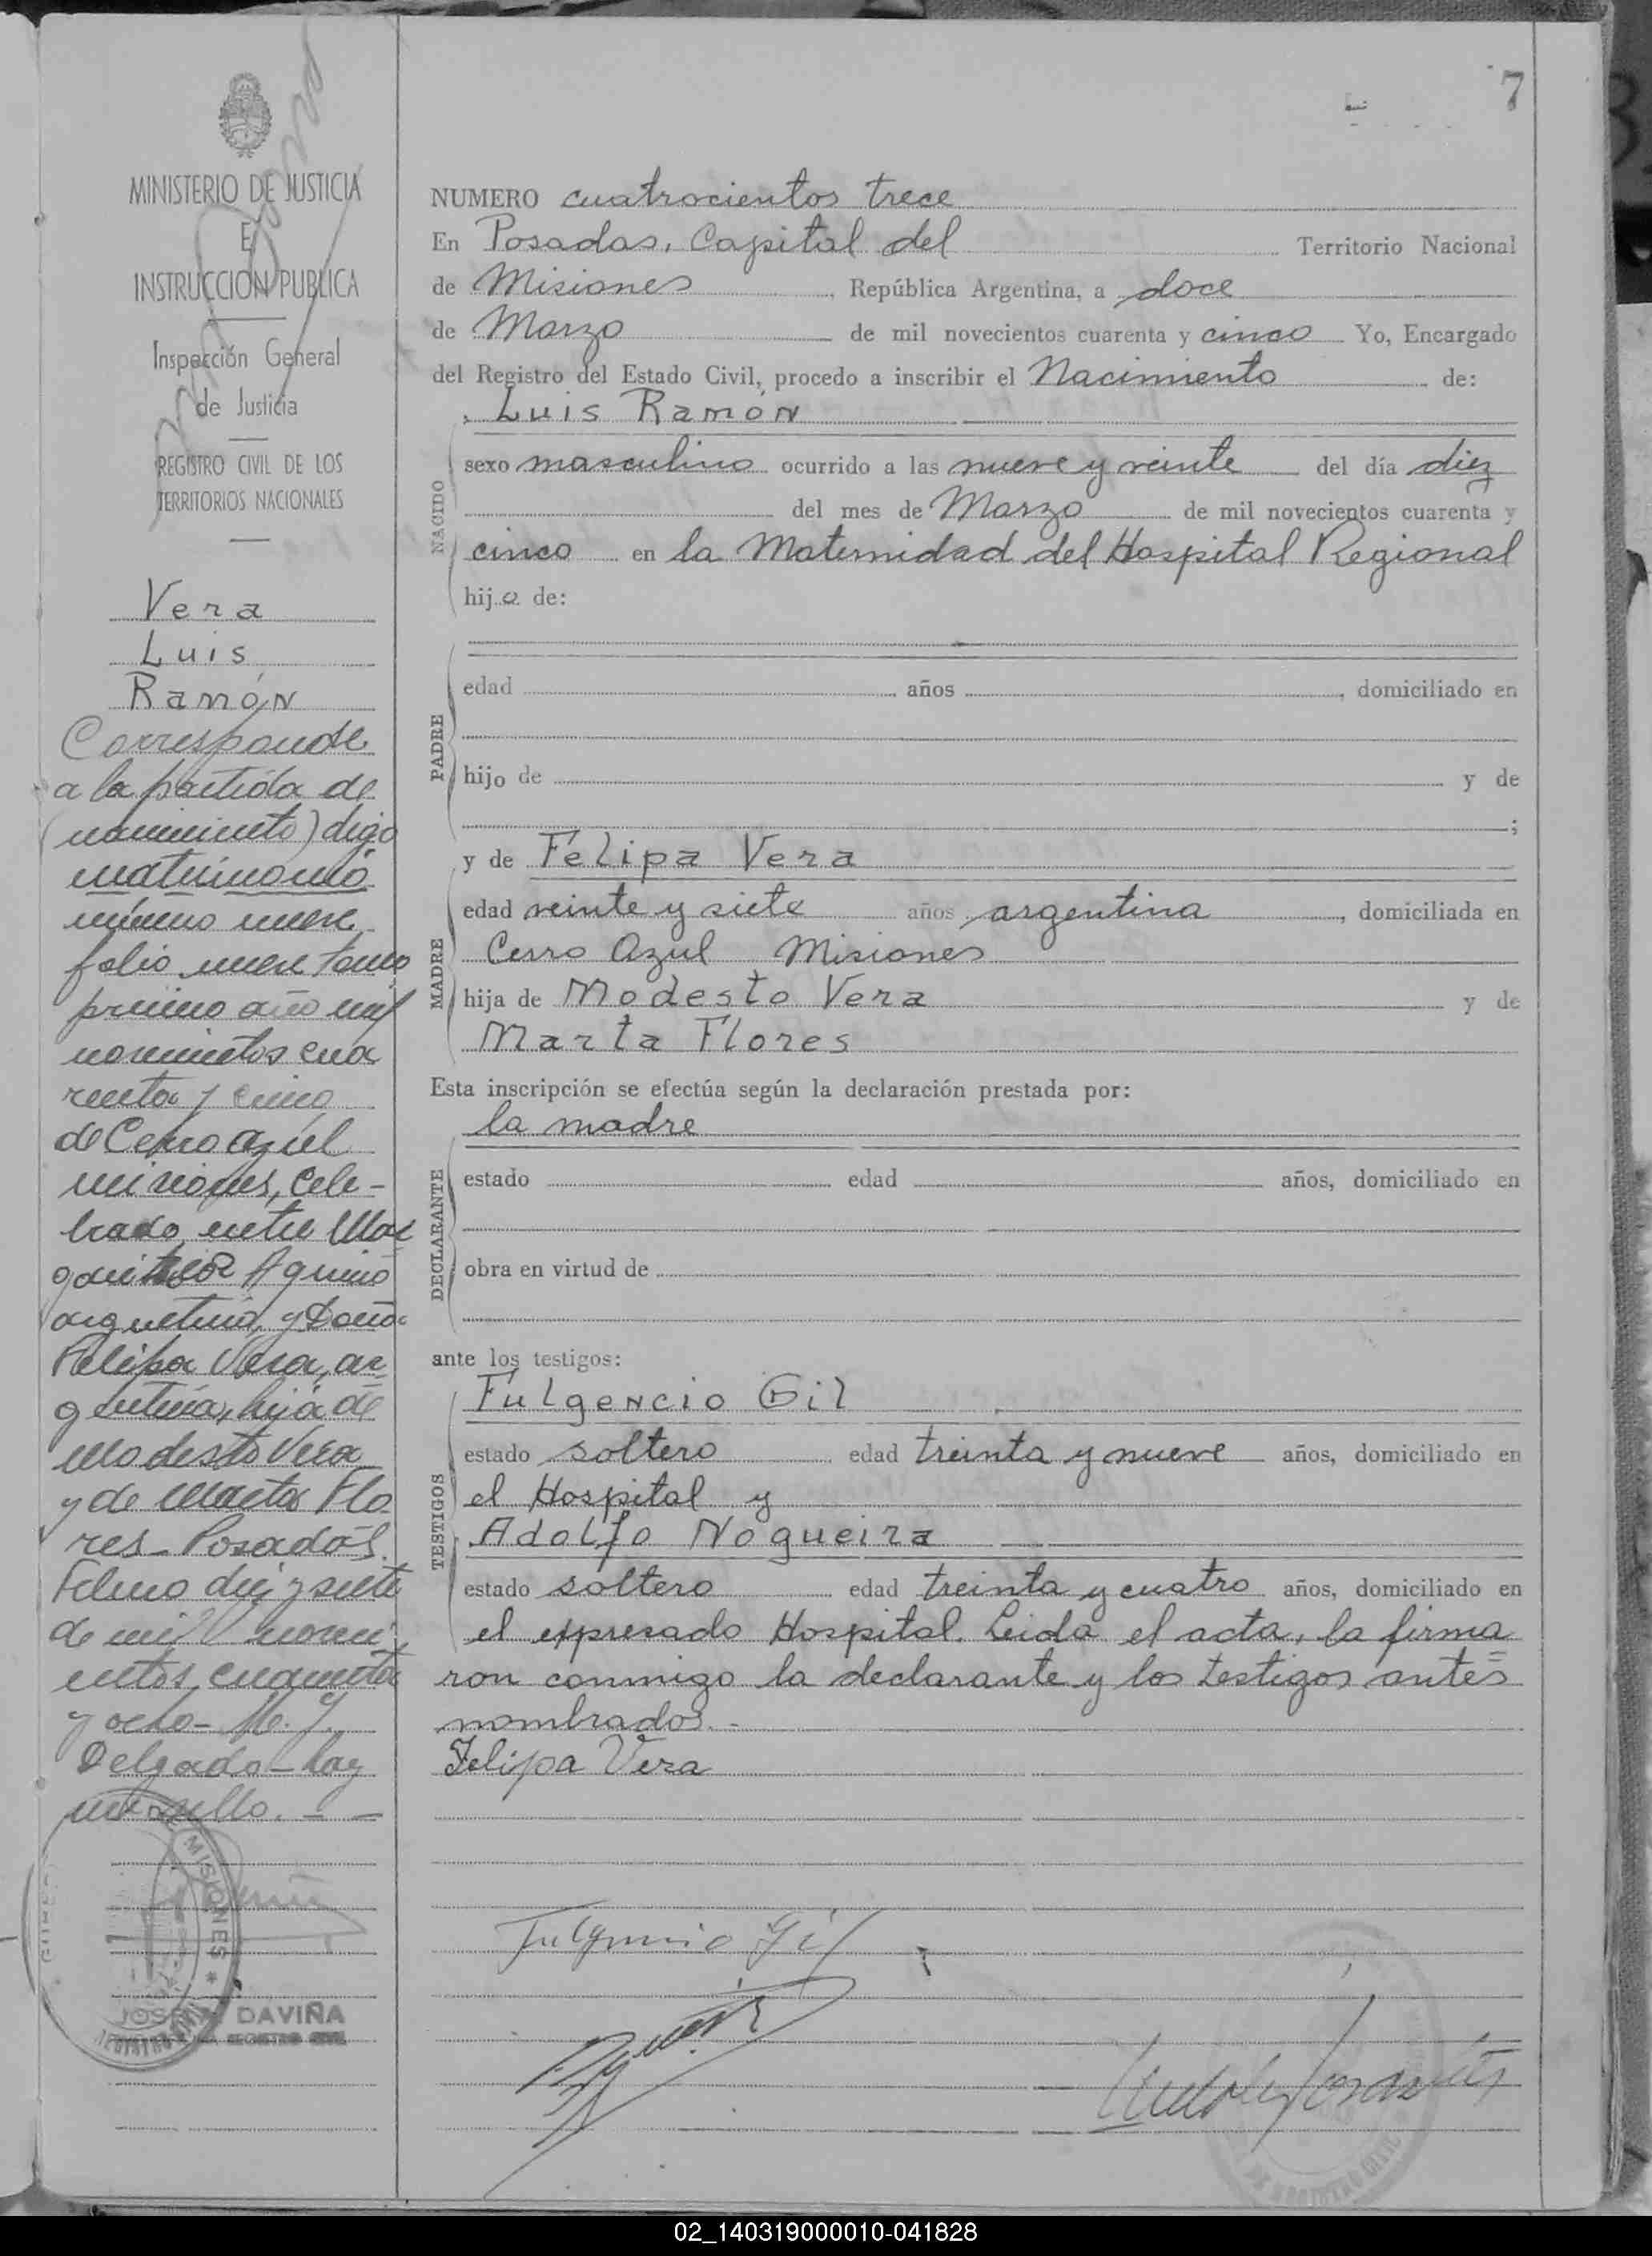 7
MINISTERIO DE JUSTICIA
E
INSTRUCCION PUBLICA
Inspección General
de Justicia
REGISTRO CIVIL DE LOS
TERRITORIOS NACIONALES
Vera
Luis
Ramón
Corresponde
a la partida de
(nacimiento) digo
matrimonio
número nueve
folio nueve tomo
primero año mil
novecientos cua
renta y cinco
de Cerro Azul
Misiones, cele-
brado entre
Aquino
argentino, y Doña
Felipa Vera, ar
gentina, hija de
Modesto Vera
y de Marta Flo
res - Posadas
diez y siete
de mil noveci
entos cuarenta
y ocho - M. J.
Delgado - hay
un sello. - -
MISIONES
JOSE DAVIÑA
NUMERO cuatrocientos trece
En Posadas, Capital del Territorio Nacional
de Misiones, República Argentina, a doce
de Marzo de mil novecientos cuarenta y cinco Yo, Encargado
del Registro del Estado Civil, procedo a inscribir el Nacimiento de:
Luis Ramón
NACIDO
sexo masculino ocurrido a las nueve y veinte del día diez
del mes de Marzo de mil novecientos cuarenta y
cinco en la Maternidad del Hospital Regional
hijo de:
PADRE
edad años, domiciliado en
hijo de y de
;
MADRE
y de Felipa Vera
edad veinte y siete años argentina, domiciliada en
Cerro Azul Misiones
hija de Modesto Vera y de
Marta Flores
Esta inscripción se efectúa según la declaración prestada por:
la madre
DECLARANTE
estado edad años, domiciliado en
obra en virtud de
ante los testigos:
TESTIGOS
Fulgencio Gil
estado soltero edad treinta y nueve años, domiciliado en
el Hospital y
Adolfo Nogueira
estado soltero edad treinta y cuatro años, domiciliado en
el expresado Hospital. Leida el acta, la firma
ron conmigo la declarante y los testigos antes
nombrados.-
Felipa Vera
Fulgencio Gil
02_140319000010-041828